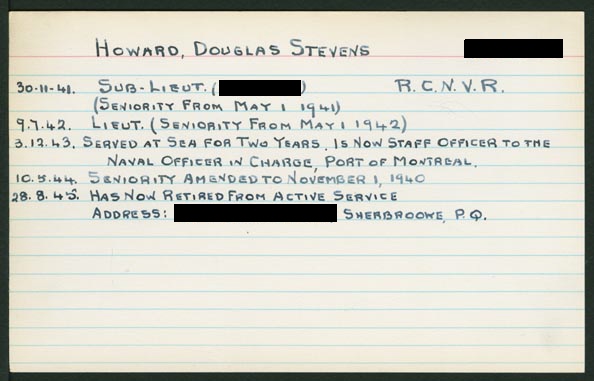 HOWARD, DOUGLAS STEVENS
30-11-41. SUB-LIEUT. ( ) R.C.N.V.R.
(SENIORITY FROM MAY 1 1941)
9.7.42. LIEUT. (SENIORITY FROM MAY 1 1942)
3.12.43. SERVED AT SEA FOR TWO YEARS. IS NOW STAFF OFFICER TO THE
NAVAL OFFICER IN CHARGE, PORT OF MONTREAL.
10.5.44. SENIORITY AMENDED TO NOVEMBER 1, 1940
28.8.45. HAS NOW RETIRED FROM ACTIVE SERVICE
ADDRESS: SHERBROOKE, P.Q.